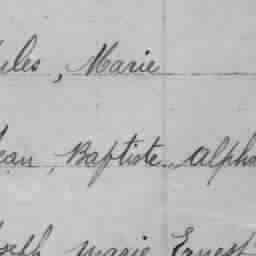 ules, Marie
Jean, Baptiste alpho
oseph marie Ernest